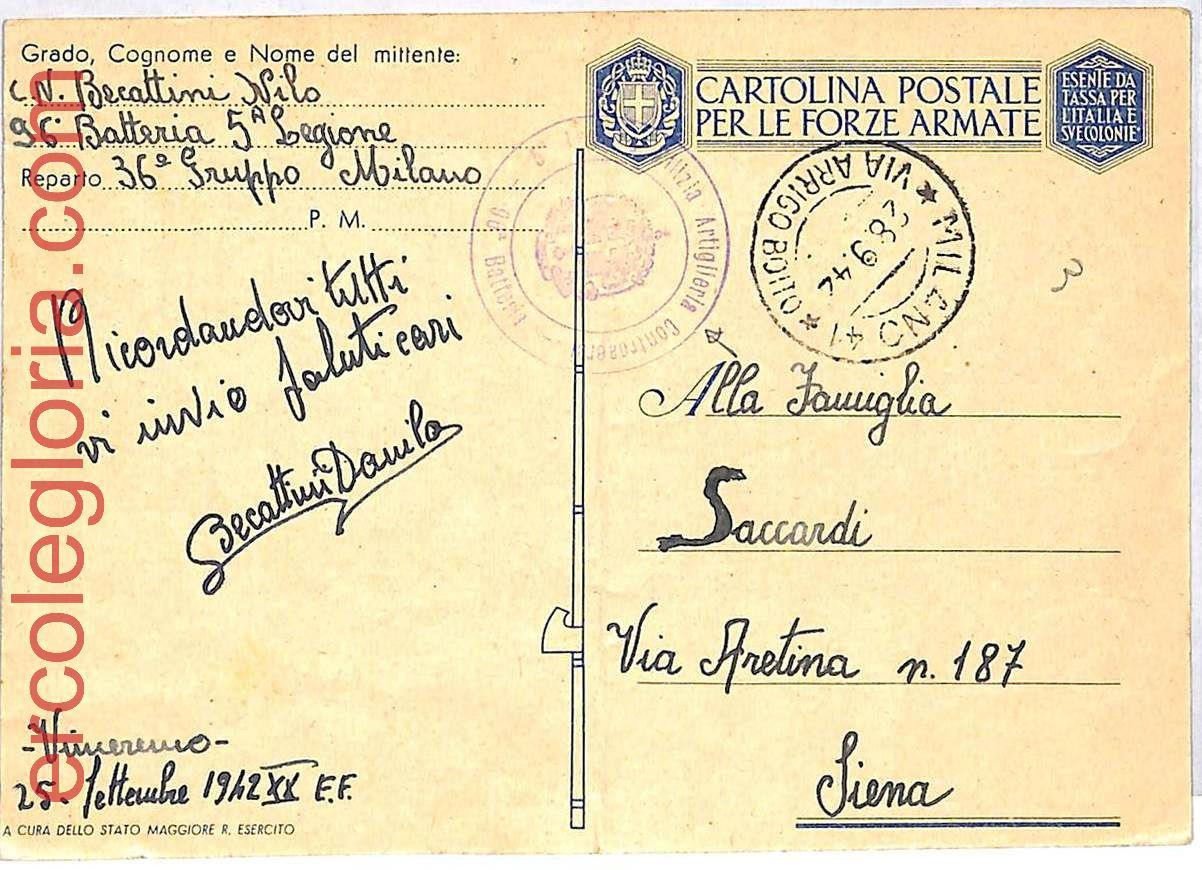 Grado, Cognome e Nome del mittente:
C.N. Becattini Nilo
96ª Batteria 5ª Legione
Reparto 36º Gruppo Milano
P. M.
Ricordandovi tutti
vi invio saluti cari
Becattini Danilo
-Vimeremo-
25. Settembre 1942 XX E.F.
A CURA DELLO STATO MAGGIORE R. ESERCITO
CARTOLINA POSTALE
PER LE FORZE ARMATE
ESENTE DA
TASSA PER
L'ITALIA E
SUE COLONIE
Milizia Artiglieria Controaerei
96ª Batteria
MILANO 41
VIA ARRIGO BOITO
28.9.42
3
Alla Famiglia
Saccardi
Via Aretina n. 187
Siena
ercolegloria.com